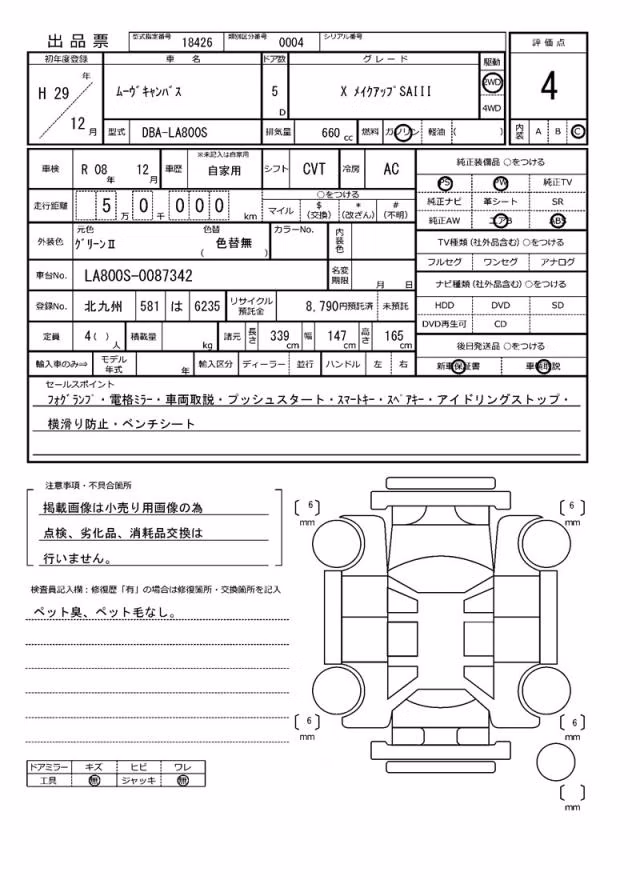 出品票 型式指定番号 18426 類別区分番号 0004 シリアル番号
初年度登録 車名 ドア数 グレード 駆動 評価点
H 29 年 12 月 ムーヴキャンバス 5 D X メイクアップSAIII 2WD 4WD 4
型式 DBA-LA800S 排気量 660 cc 燃料 ガソリン 軽油 ( ) 内装 A B C
車検 R 08 年 12 月 車歴 ※未記入は自家用 自家用 シフト CVT 冷房 AC
純正装備品 ○をつける
PS PW 純正TV
走行距離 5 万 0 千 0 0 0 km ○をつける マイル $ (交換) * (改ざん) # (不明)
純正ナビ 革シート SR
純正AW エアB ABS
外装色 元色 グリーンⅡ 色替 色替無 ( ) カラーNo. 内装色
TV種類 (社外品含む) ○をつける
フルセグ ワンセグ アナログ
車台No. LA800S-0087342 名変期限 月 日
ナビ種類 (社外品含む) ○をつける
登録No. 北九州 581 は 6235 リサイクル預託金 8,790円預託済 未預託
HDD DVD SD
DVD再生可 CD
定員 4 ( ) 人 積載量 kg 諸元 長さ 339 cm 幅 147 cm 高さ 165 cm
後日発送品 ○をつける
輸入車のみ⇒ モデル年式 年 輸入区分 ディーラー 並行 ハンドル 左 右
新車保証書 車輌取説
セールスポイント
フォグランプ・電格ミラー・車両取説・プッシュスタート・スマートキー・スペアキー・アイドリングストップ・
横滑り防止・ベンチシート
注意事項・不具合箇所
掲載画像は小売り用画像の為
点検、劣化品、消耗品交換は
行いません。
検査員記入欄：修復歴「有」の場合は修復箇所・交換箇所を記入
ペット臭、ペット毛なし。
6 mm
6 mm
6 mm
6 mm
mm
ドアミラー キズ ヒビ ワレ
工具 無 ジャッキ 無